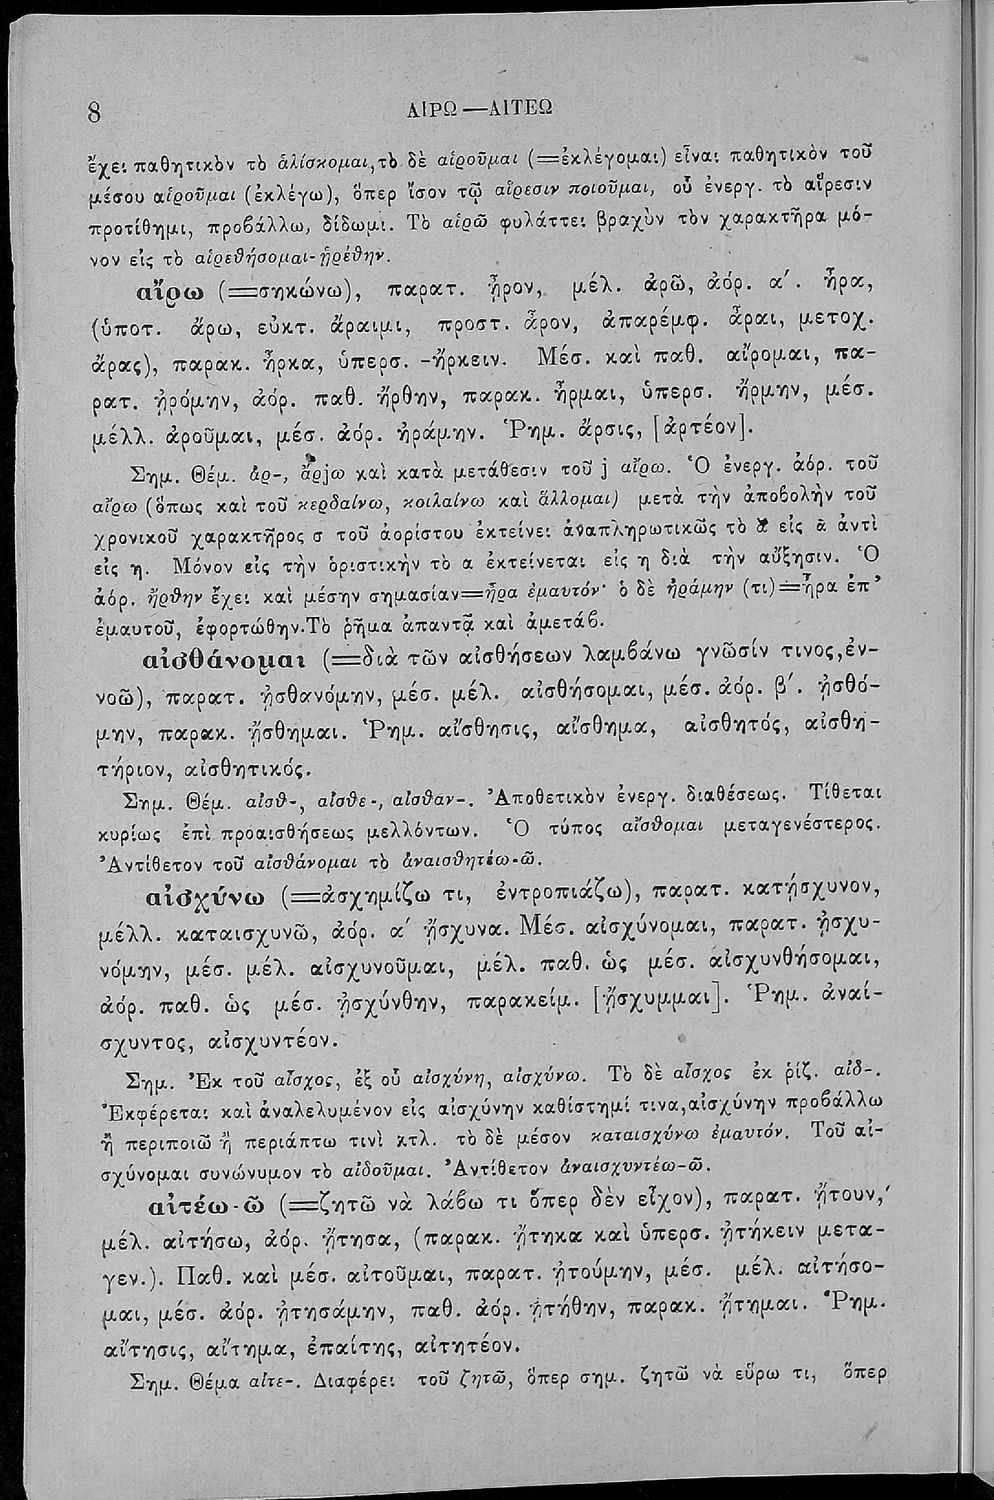 8
ΑΙΡΩ—ΑΙΤΕΩ
ἔχει παθητικὸν τὸ ἁλίσκομαι, τὸ δὲ αἱροῦμαι (=ἐκλέγομαι) εἶναι παθητικὸν τοῦ
μέσου αἱροῦμαι (ἐκλέγω), ὅπερ ἴσον τῷ αἵρεσιν ποιοῦμαι, οὗ ἐνεργ. τὸ αἵρεσιν
προτίθημι, προβάλλω, δίδωμι. Τὸ αἱρῶ φυλάττει βραχὺν τὸν χαρακτῆρα μό-
νον εἰς τὸ αἱρεθήσομαι-ᾑρέθην.
αἴρω (=σηκώνω), παρατ. ᾖρον, μέλ. ἀρῶ, ἀόρ. α΄. ἦρα,
(ὑποτ. ἄρω, εὐκτ. ἄραιμι, προστ. ἆρον, ἀπαρέμφ. ἆραι, μετοχ.
ἄρας), παρακ. ἦρκα, ὑπερσ. -ἤρκειν. Μέσ. καὶ παθ. αἴρομαι, πα-
ρατ. ᾐρόμην, ἀόρ. παθ. ἤρθην, παρακ. ἦρμαι, ὑπερσ. ἤρμην, μέσ.
μέλλ. ἀροῦμαι, μέσ. ἀόρ. ἠράμην. Ῥημ. ἄρσις, [ἀρτέον].
Σημ. Θέμ. ἀρ-, ἄρjω καὶ κατὰ μετάθεσιν τοῦ j αἴρω. Ὁ ἐνεργ. ἀόρ. τοῦ
αἴρω (ὅπως καὶ τοῦ κερδαίνω, κοιλαίνω καὶ ἅλλομαι) μετὰ τὴν ἀποβολὴν τοῦ
χρονικοῦ χαρακτῆρος σ τοῦ ἀορίστου ἐκτείνει ἀναπληρωτικῶς τὸ ᾰ εἰς ᾱ ἀντὶ
εἰς η. Μόνον εἰς τὴν ὁριστικὴν τὸ α ἐκτείνεται εἰς η διὰ τὴν αὔξησιν. Ὁ
ἀόρ. ἤρθην ἔχει καὶ μέσην σημασίαν=ἦρα ἐμαυτόν· ὁ δὲ ἠράμην (τι)=ἦρα ἐπ’
ἐμαυτοῦ, ἐφορτώθην. Τὸ ῥῆμα ἀπαντᾷ καὶ ἀμετάβ.
αἰσθάνομαι (=διὰ τῶν αἰσθήσεων λαμβάνω γνῶσίν τινος, ἐν-
νοῶ), παρατ. ᾐσθανόμην, μέσ. μέλ. αἰσθήσομαι, μέσ. ἀόρ. β΄. ᾐσθό-
μην, παρακ. ᾔσθημαι. Ῥημ. αἴσθησις, αἴσθημα, αἰσθητός, αἰσθη-
τήριον, αἰσθητικός.
Σημ. Θέμ. αἰσθ-, αἰσθε-, αἰσθαν-. Ἀποθετικὸν ἐνεργ. διαθέσεως. Τίθεται
κυρίως ἐπὶ προαισθήσεως μελλόντων. Ὁ τύπος αἴσθομαι μεταγενέστερος.
Ἀντίθετον τοῦ αἰσθάνομαι τὸ ἀναισθητέω-ῶ.
αἰσχύνω (=ἀσχημίζω τι, ἐντροπιάζω), παρατ. κατῄσχυνον,
μέλλ. καταισχυνῶ, ἀόρ. α΄ ᾔσχυνα. Μέσ. αἰσχύνομαι, παρατ. ᾐσχυ-
νόμην, μέσ. μέλ. αἰσχυνοῦμαι, μέλ. παθ. ὡς μέσ. αἰσχυνθήσομαι,
ἀόρ. παθ. ὡς μέσ. ᾐσχύνθην, παρακείμ. [ᾔσχυμμαι]. Ῥημ. ἀναί-
σχυντος, αἰσχυντέον.
Σημ. Ἐκ τοῦ αἶσχος, ἐξ οὗ αἰσχύνη, αἰσχύνω. Τὸ δὲ αἶσχος ἐκ ῥίζ. αἰδ-.
Ἐκφέρεται καὶ ἀναλελυμένον εἰς αἰσχύνην καθίστημί τινα, αἰσχύνην προβάλλω
ἢ περιποιῶ ἢ περιάπτω τινὶ κτλ. τὸ δὲ μέσον καταισχύνω ἐμαυτόν. Τοῦ αἰ-
σχύνομαι συνώνυμον τὸ αἰδοῦμαι. Ἀντίθετον ἀναισχυντέω-ῶ.
αἰτέω-ῶ (=ζητῶ νὰ λάβω τι ὅπερ δὲν εἶχον), παρατ. ᾔτουν,
μέλ. αἰτήσω, ἀόρ. ᾔτησα, (παρακ. ᾔτηκα καὶ ὑπερσ. ᾐτήκειν μετα-
γεν.). Παθ. καὶ μέσ. αἰτοῦμαι, παρατ. ᾐτούμην, μέσ. μέλ. αἰτήσο-
μαι, μέσ. ἀόρ. ᾐτησάμην, παθ. ἀόρ. ᾐτήθην, παρακ. ᾔτημαι. Ῥημ.
αἴτησις, αἴτημα, ἐπαίτης, αἰτητέον.
Σημ. Θέμα αἰτε-. Διαφέρει τοῦ ζητῶ, ὅπερ σημ. ζητῶ νὰ εὕρω τι, ὅπερ